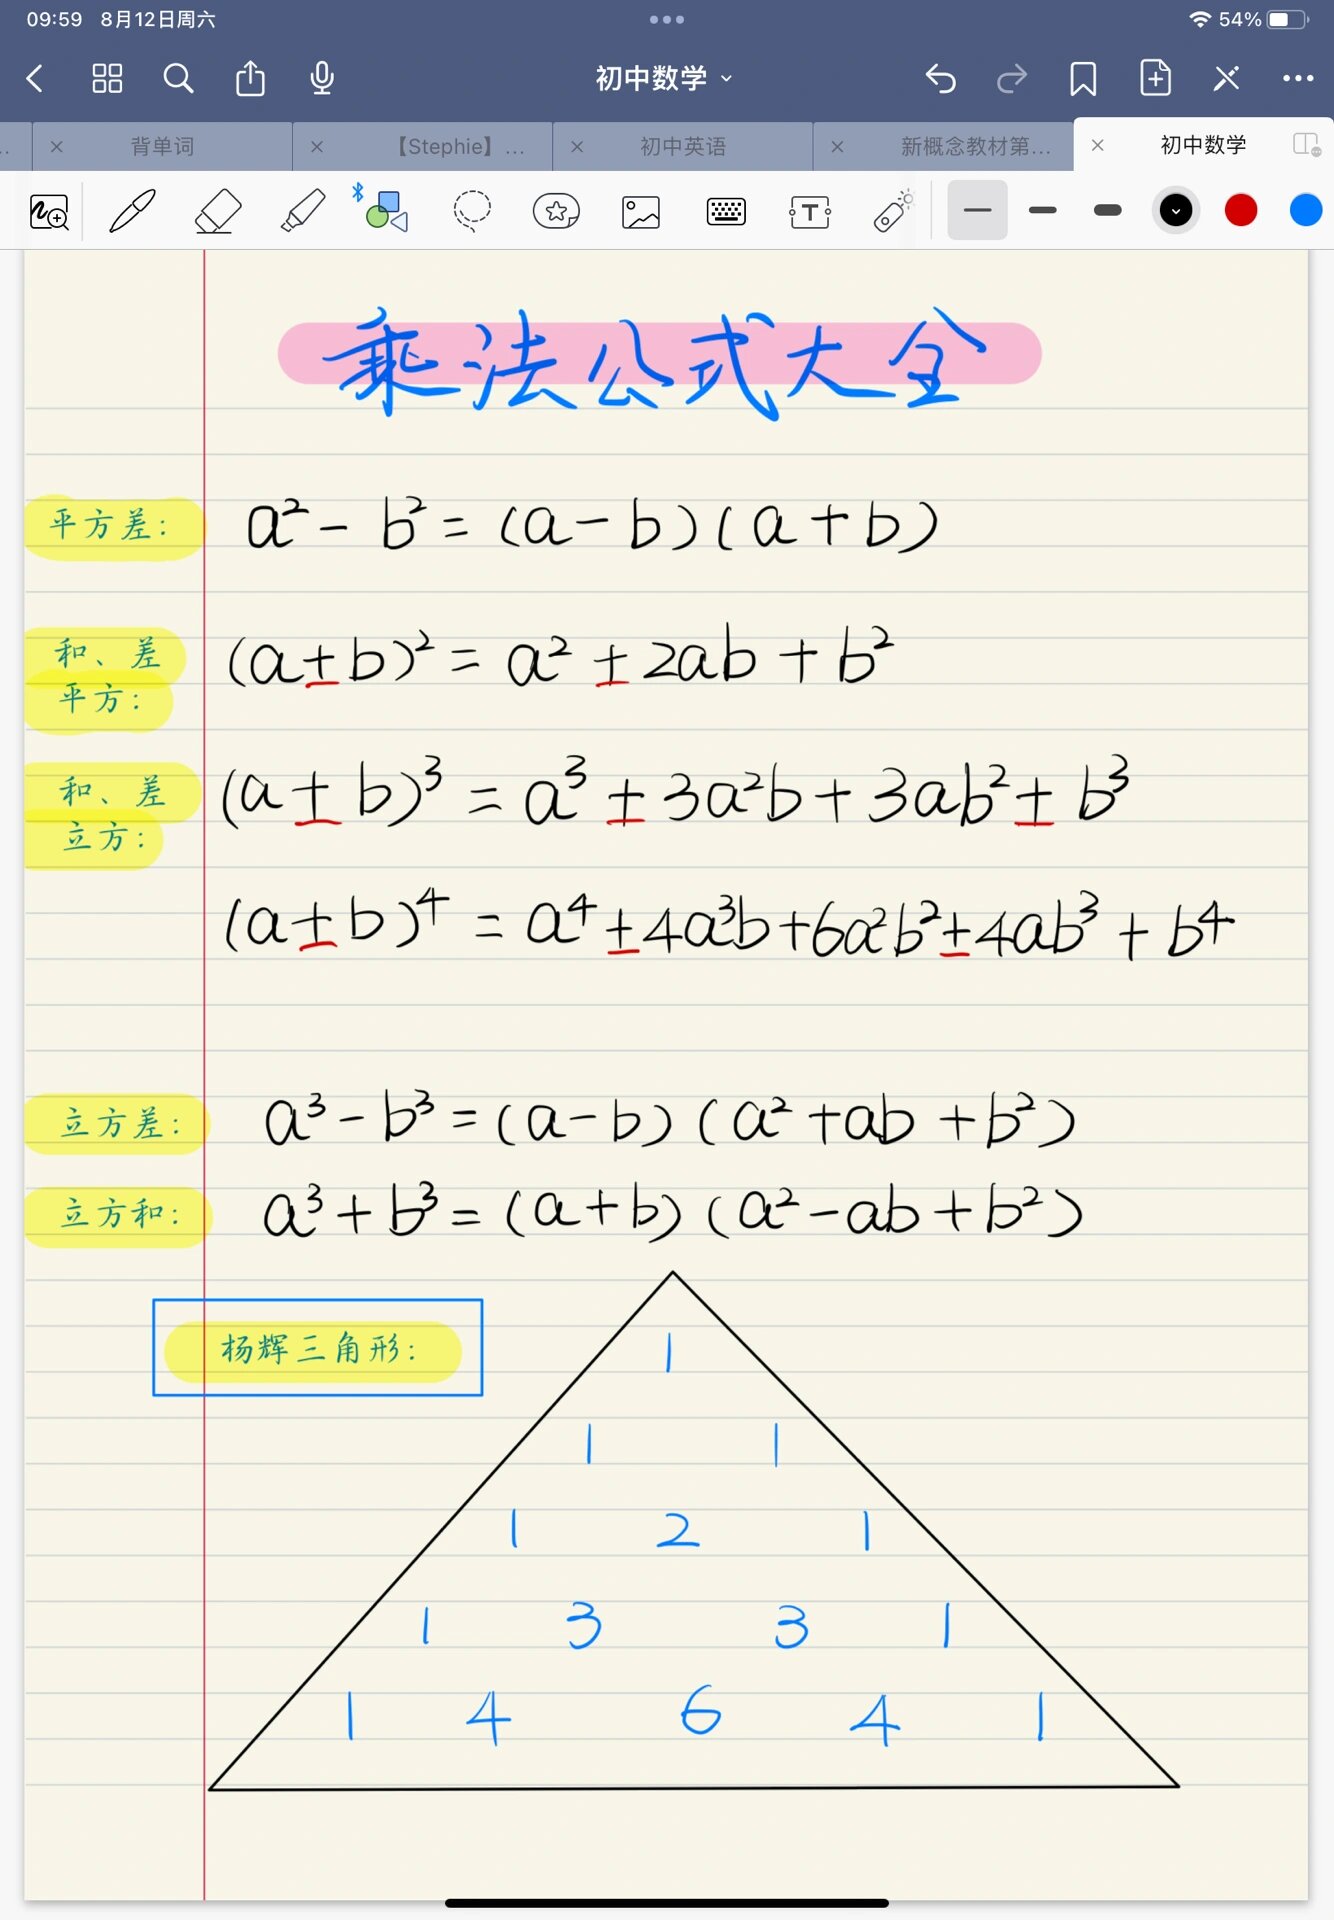 09:59 8月12日周六 54%
初中数学
背单词 【Stephie】... 初中英语 新概念教材第... 初中数学
乘法公式大全
平方差: a² - b² = (a - b)(a + b)
和、差
平方: (a ± b)² = a² ± 2ab + b²
和、差
立方: (a ± b)³ = a³ ± 3a²b + 3ab² ± b³
(a ± b)⁴ = a⁴ ± 4a³b + 6a²b² ± 4ab³ + b⁴
立方差: a³ - b³ = (a - b)(a² + ab + b²)
立方和: a³ + b³ = (a + b)(a² - ab + b²)
杨辉三角形:
1
1 1
1 2 1
1 3 3 1
1 4 6 4 1